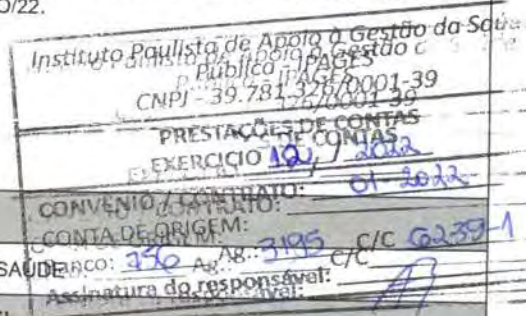 O/22.
Instituto Paulista de Apoio à Gestão da Saúde
Pública - IPAGES
CNPJ - 39.781.326/0001-39
PRESTAÇÕES DE CONTAS
EXERCICIO 10 / 2022
CONVENIO / CONTRATO: 01-2022
CONTA DE ORIGEM:
SAUDE Banco: 756 Ag.: 3195 C/C 6239-1
Assinatura do responsável: